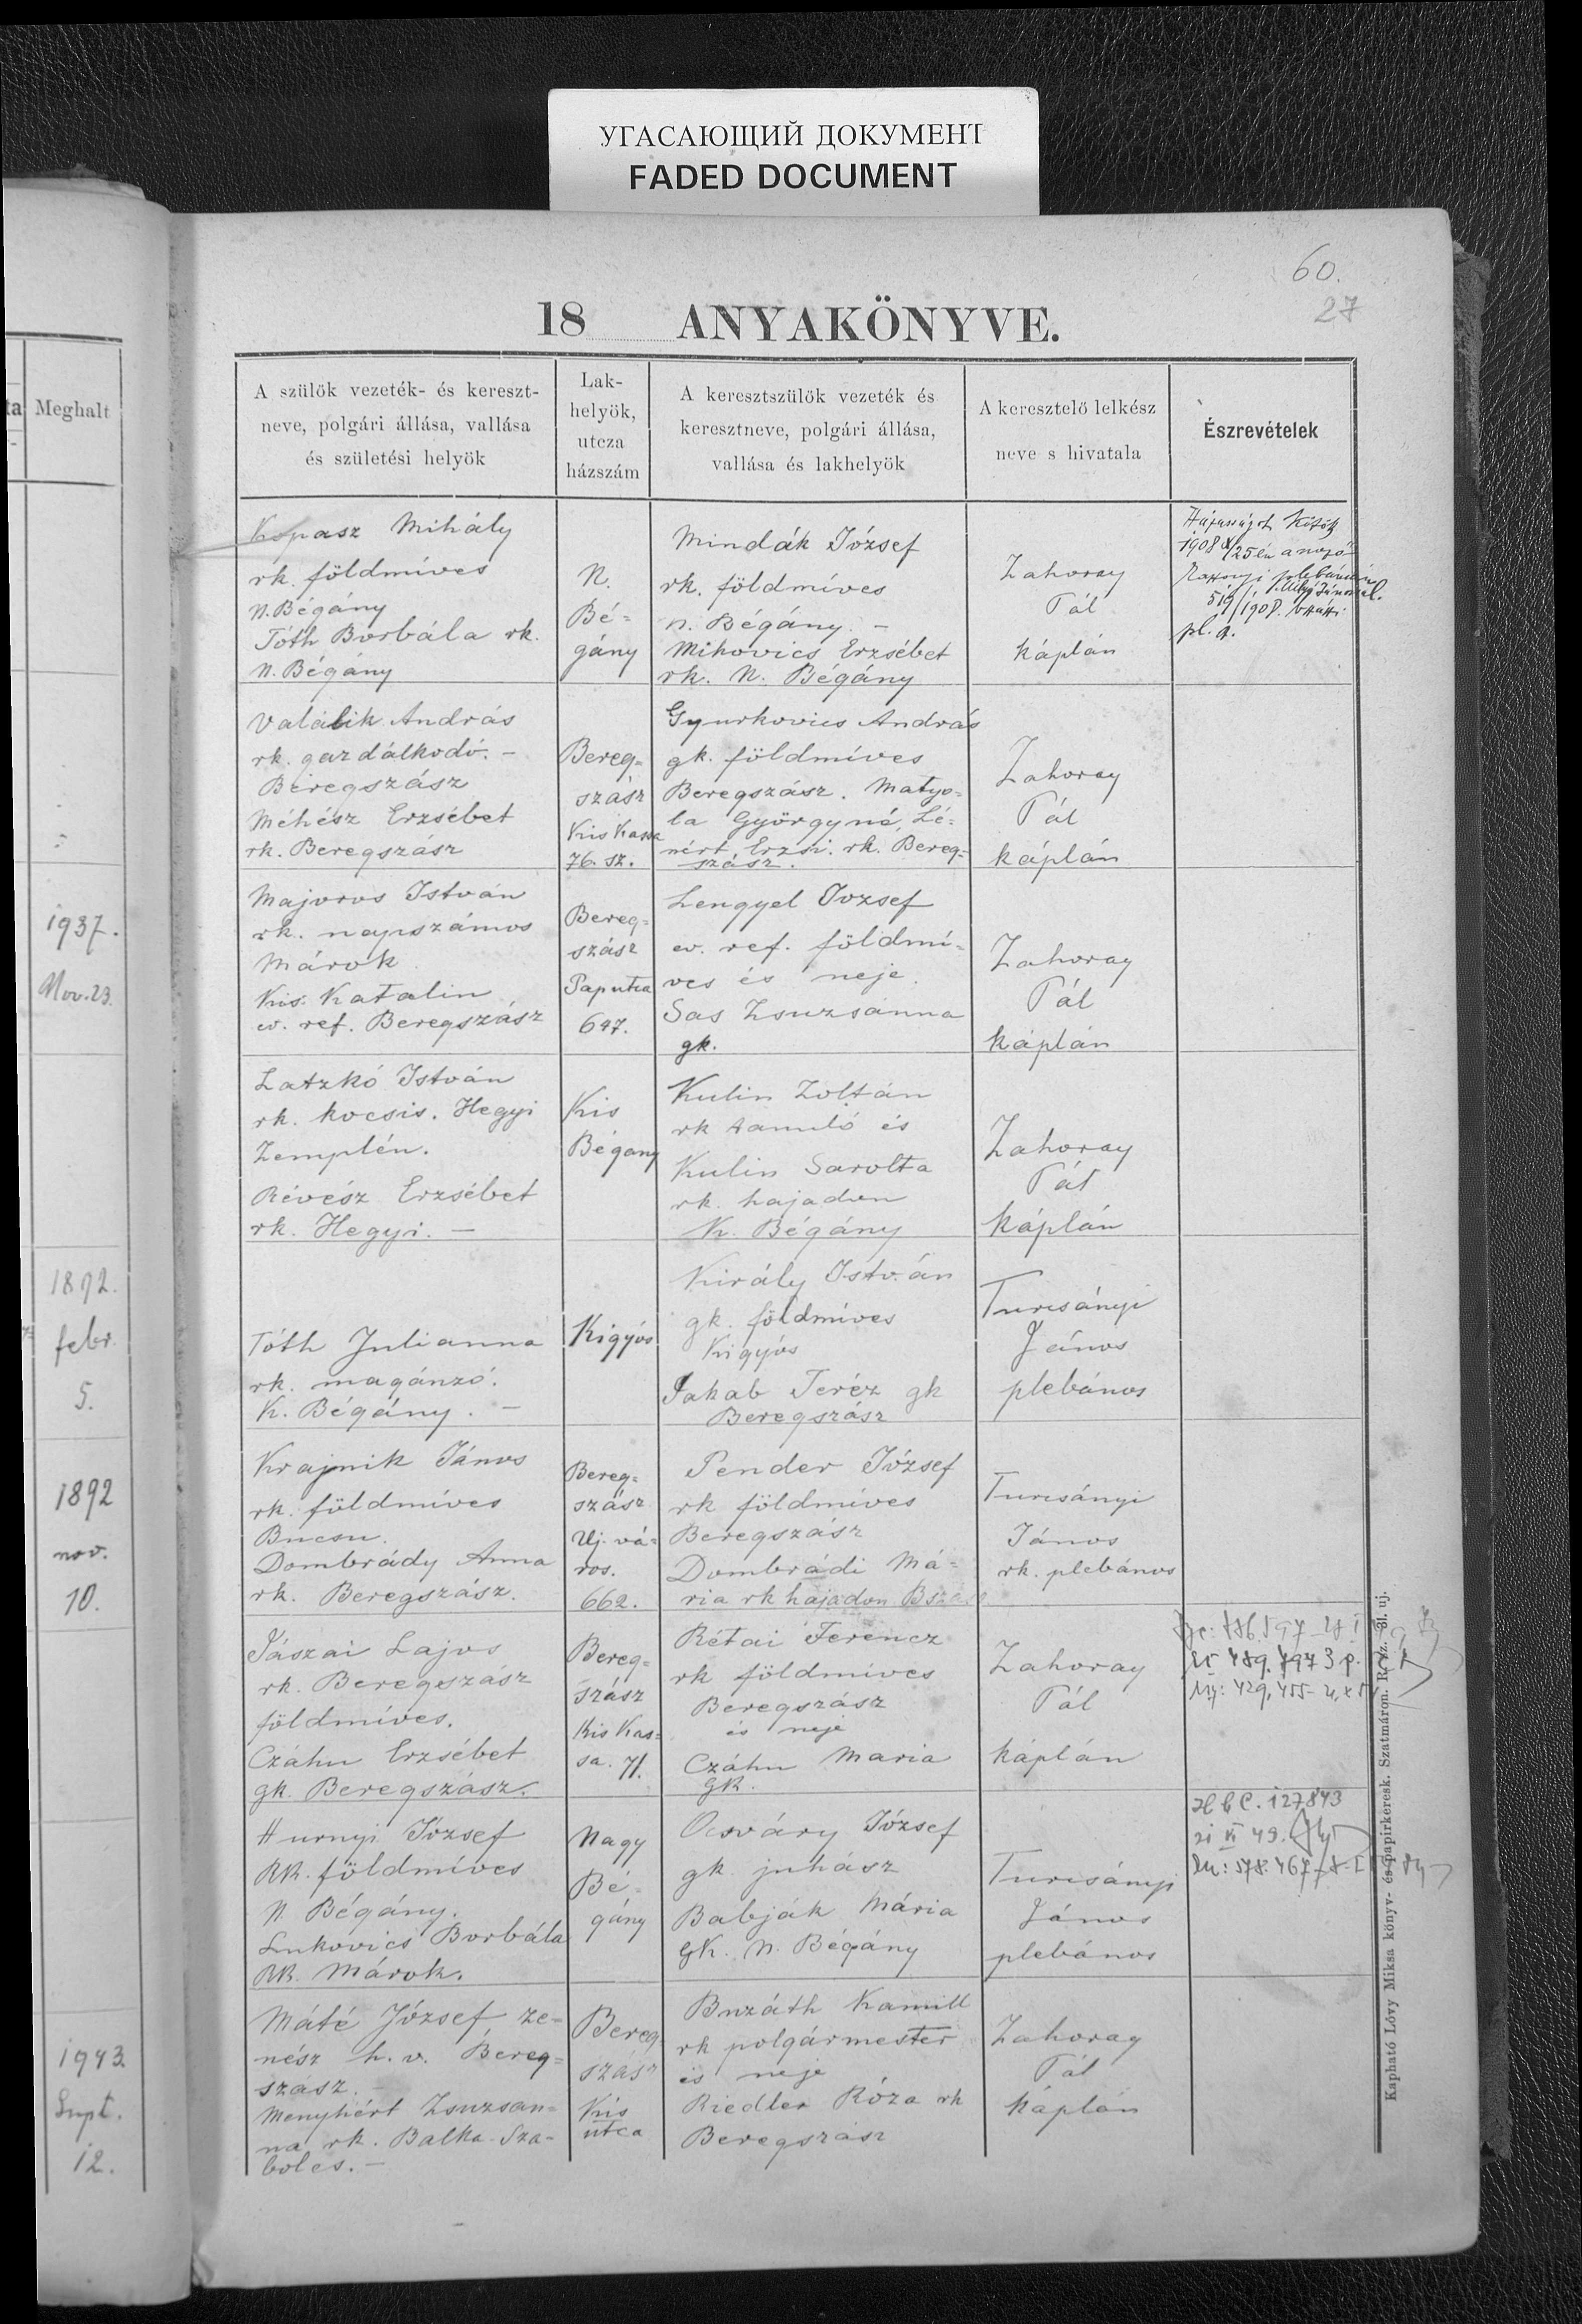 УГАСАЮЩИЙ ДОКУМЕНТ
FADED DOCUMENT
60.
27
18 ANYAKÖNYVE.
Meghalt
1937.
Nov. 23.
1892.
febr.
5.
1892
nov.
10.
1943.
Sept.
12.
A szülők vezeték- és kereszt-
neve, polgári állása, vallása
és születési helyök
Lak-
helyök,
utcza
házszám
A keresztszülők vezeték és
keresztneve, polgári állása,
vallása és lakhelyök
A keresztelő lelkész
neve s hivatala
Észrevételek
Kopasz Mihály
rk. földmíves
N. Bégány
Tóth Borbála rk.
N. Bégány
N.
Bé-
gány
Mindák József
rk. földmíves
N. Bégány. -
Mihovics Erzsébet
rk. N. Bégány
Zahoray
Pál
káplán
Házasságot kötött
1908
pl. a.
Valálik András
rk. gazdálkodó. -
Beregszász
Méhész Erzsébet
rk. Beregszász
Bereg-
szász
Kis Kassa
76. sz.
Gyurkovics András
gk. földmíves
Beregszász. Matyo-
la Györgyné, Lé-
nért Erzsi. rk. Bereg-
szász.
Zahoray
Pál
káplán
Majoros István
rk. napszámos
Márok
Kis Katalin
ev. ref. Beregszász
Bereg-
szász
Paputca
647.
Lengyel József
ev. ref. földmí-
ves és neje.
Sas Zsuzsánna
gk.
Zahoray
Pál
káplán
Latzkó István
rk. kocsis. Hegyi
Zemplén.
Révész Erzsébet
rk. Hegyi. -
Kis
Bégany
Kulin Zoltán
rk tanuló és
Kulin Sarolta
rk. hajadon
K. Bégány
Zahoray
Pál
káplán
Tóth Julianna
rk. magánzó.
K. Bégány. -
Kigyós
Király István
gk. földmíves
Kigyós
Jakab Teréz gk
Beregszász
Turcsányi
János
plebános
Krajnik János
rk. földmíves
Bucsu.
Dombrády Anna
rk. Beregszász.
Bereg-
szász
Uj. vá-
ros.
662.
Pender József
rk földmíves
Beregszász
Dombrádi Má-
ria rk hajadon
Turcsányi
János
rk. plebános
Jászai Lajos
rk. Beregszász
földmíves.
Czáhn Erzsébet
gk. Beregszász.
Bereg-
szász
Kis Kas-
sa. 71.
Rétai Ferencz
rk földmíves
Beregszász
és neje
Czáhn Maria
GK.
Zahoray
Pál
káplán
Hurnyi József
RK. földmíves
N Bégány.
Lukovics Borbála
RK. Márok.
Nagy
Bé-
gány
Osváry József
gk. juhász
Babják Mária
GK. N. Bégány
Turcsányi
János
plebános
127843
Máté József ze-
nész h. v. Bereg-
szász. -
Menyhért Zsuzsan-
na rk. Balka Sza-
bolcs. -
Bereg
szász
Kis
utca
Buzáth Kamill
rk polgármester
és neje
Riedler Róza rk
Beregszász
Zahoray
Pál
káplán
Kapható Lővy Miksa könyv- és papirkeresk. Szatmáron.